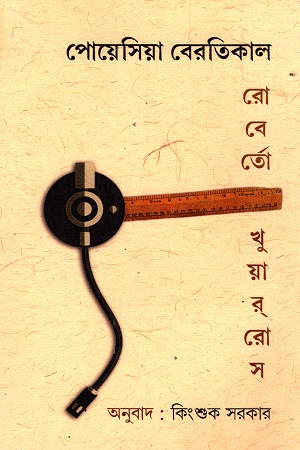 পোয়েসিয়া বেরতিকাল
রো
বে
র্তো
খু
য়া
র্
রো
স
অনুবাদ : কিংশুক সরকার